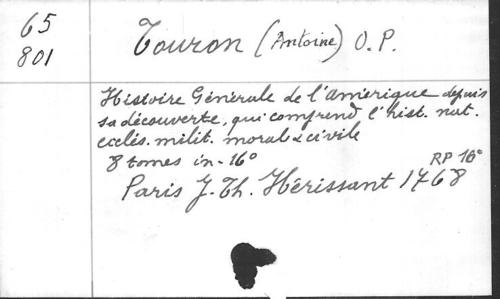 65
801
Touron (Antoine) O.P.
Histoire Générale de l'Amérique depuis
sa découverte, qui comprend l'hist. nat.
ecclés. milit. morale & civile
8 tomes in-16°
RP 16°
Paris J. Th. Hérissant 1768